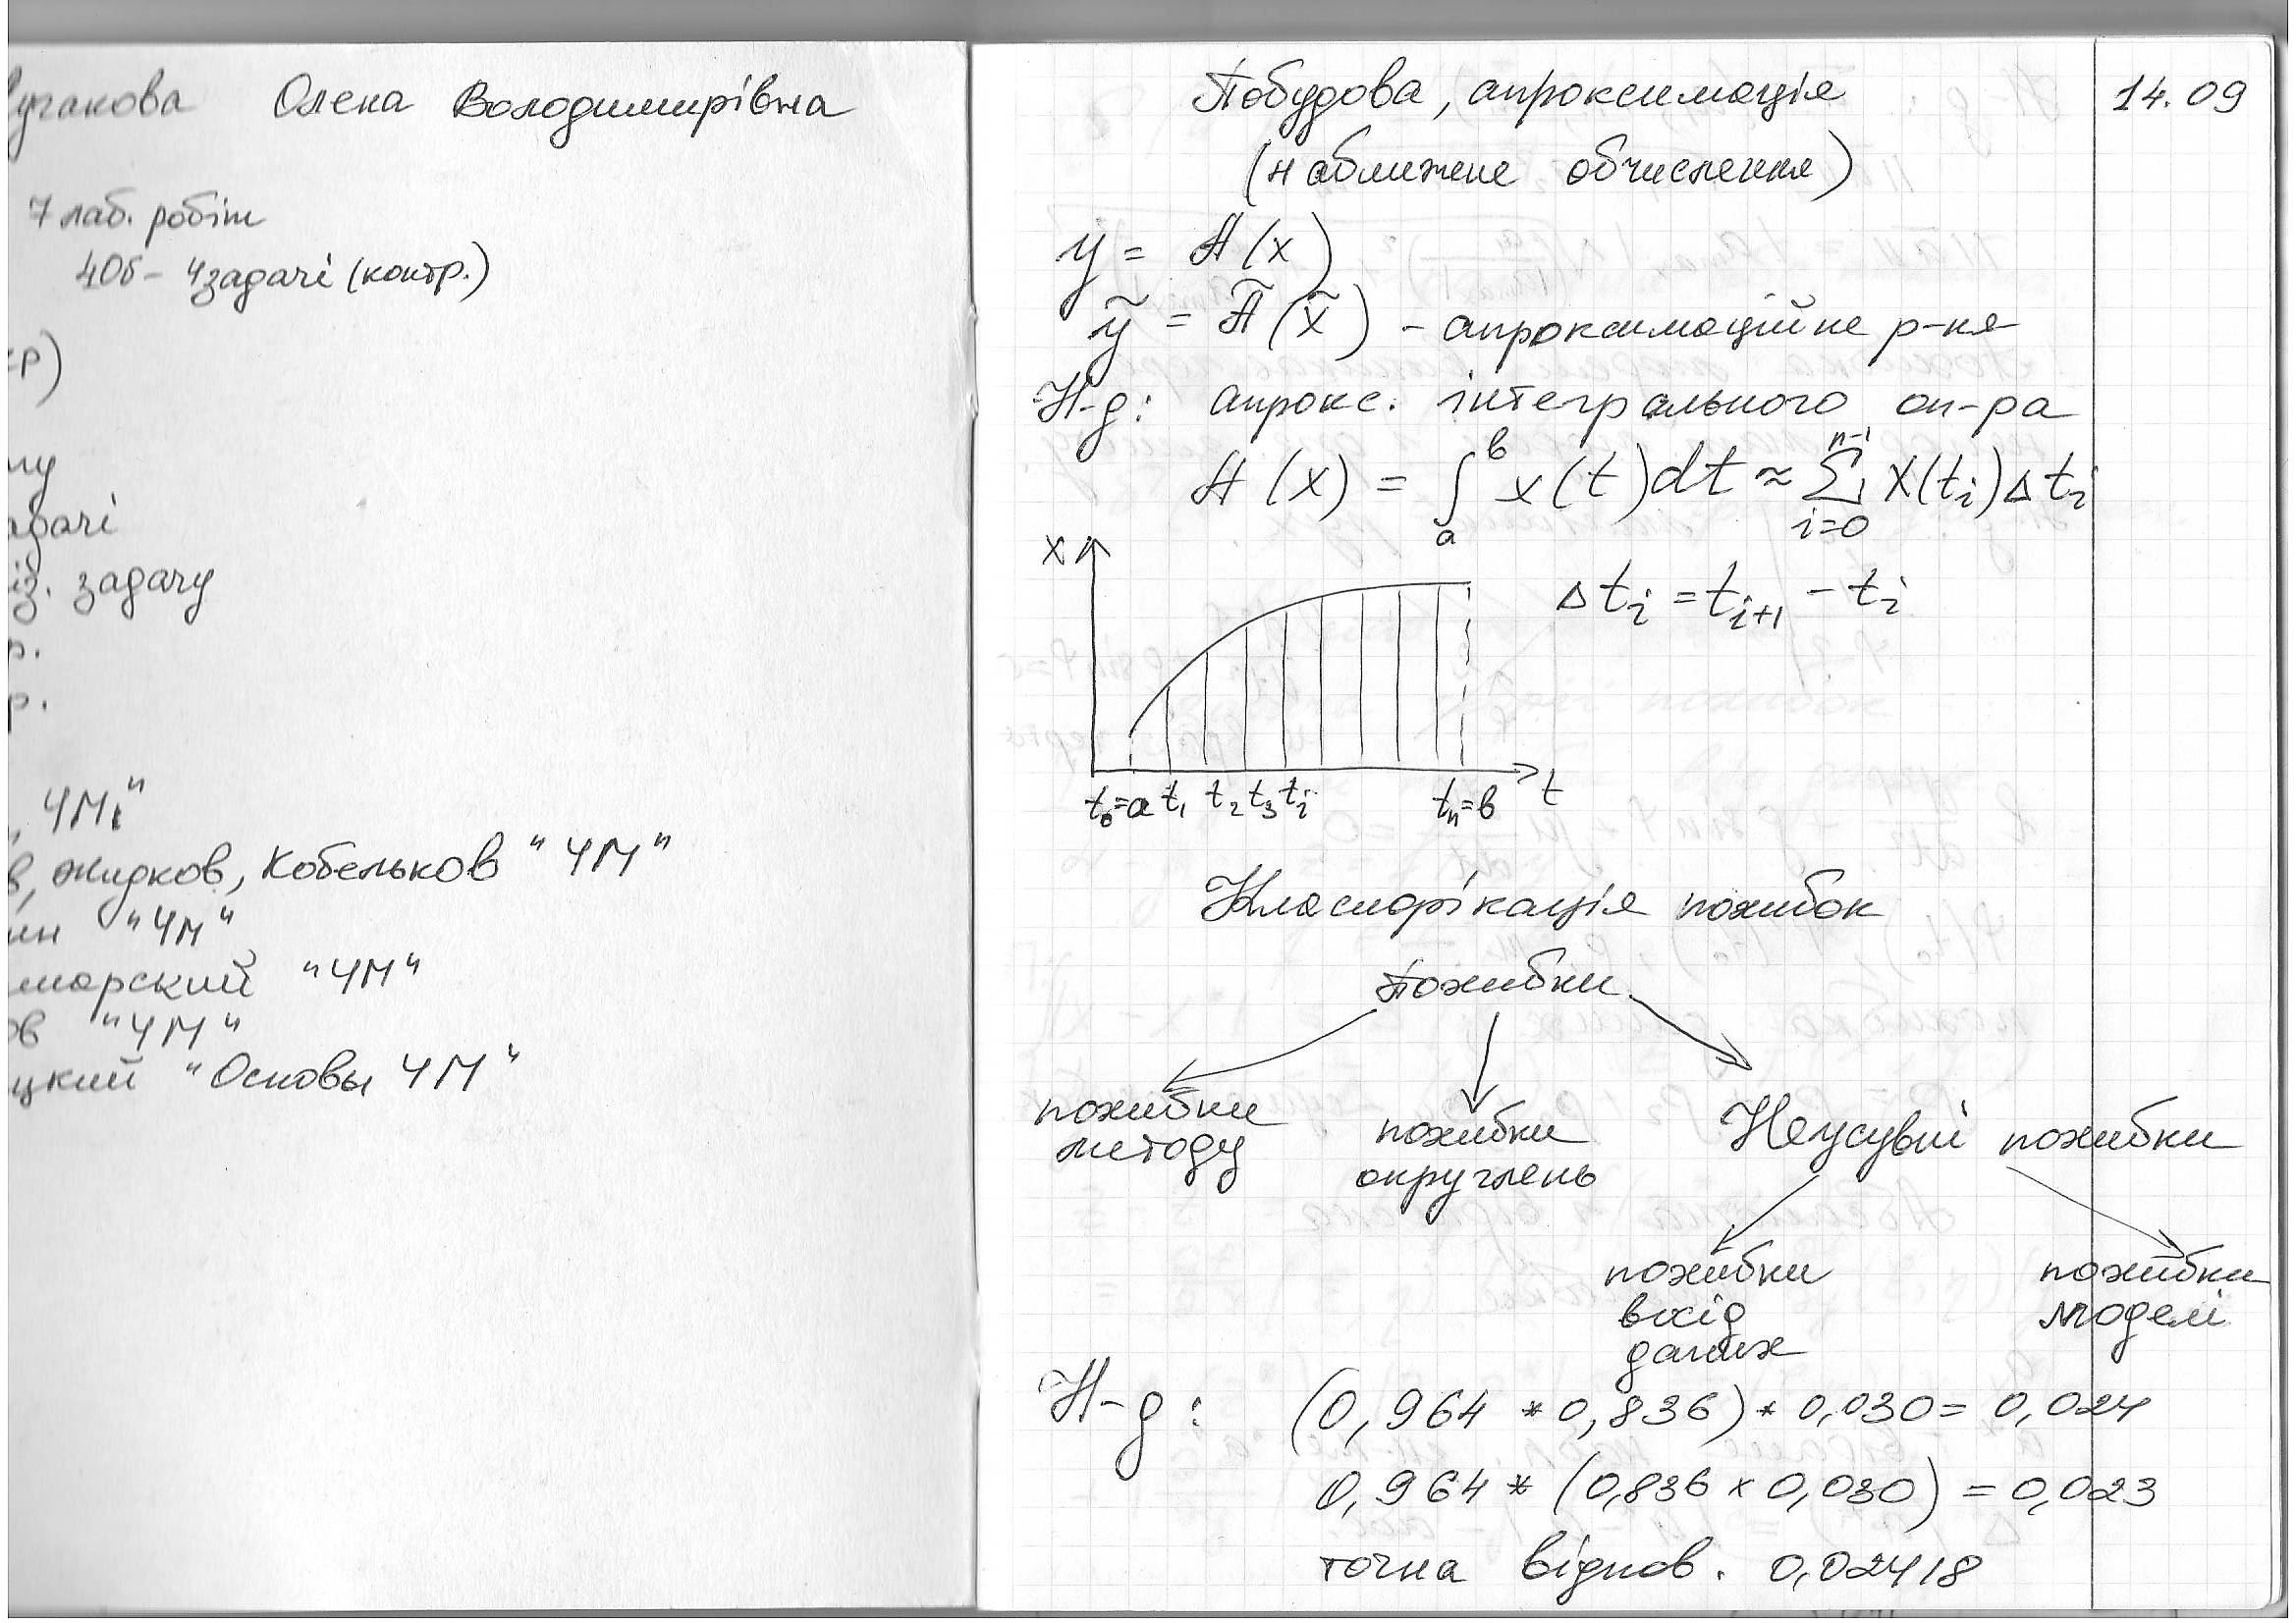 Олена Володимирівна
7 лаб. робіт
40б – 4 задачі (контр.)
задачу
"ЧМ"
Жидков, Кобельков "ЧМ"
"ЧМ"
"ЧМ"
"ЧМ"
"Основы ЧМ"
14.09
Побудова, апроксимація
(наближене обчислення)
y = A(x)
ỹ = Ã(x̃) – апроксимаційне р-ня
Н-д: апрокс. інтегрального оп-ра
A(x) = ∫ₐᵇ x(t)dt ≈ Σᵢ₌₀ⁿ⁻¹ x(tᵢ)Δtᵢ
x
Δtᵢ = tᵢ₊₁ – tᵢ
t₀=a t₁ t₂ t₃ tᵢ tₙ=b t
Класифікація похибок
Похибки
похибки методу
похибки округлень
Неусувні похибки
похибки вхід даних
похибки моделі
Н-д: (0,964 * 0,836) * 0,030 = 0,024
0,964 * (0,836 × 0,030) = 0,023
точна відпов. 0,02418